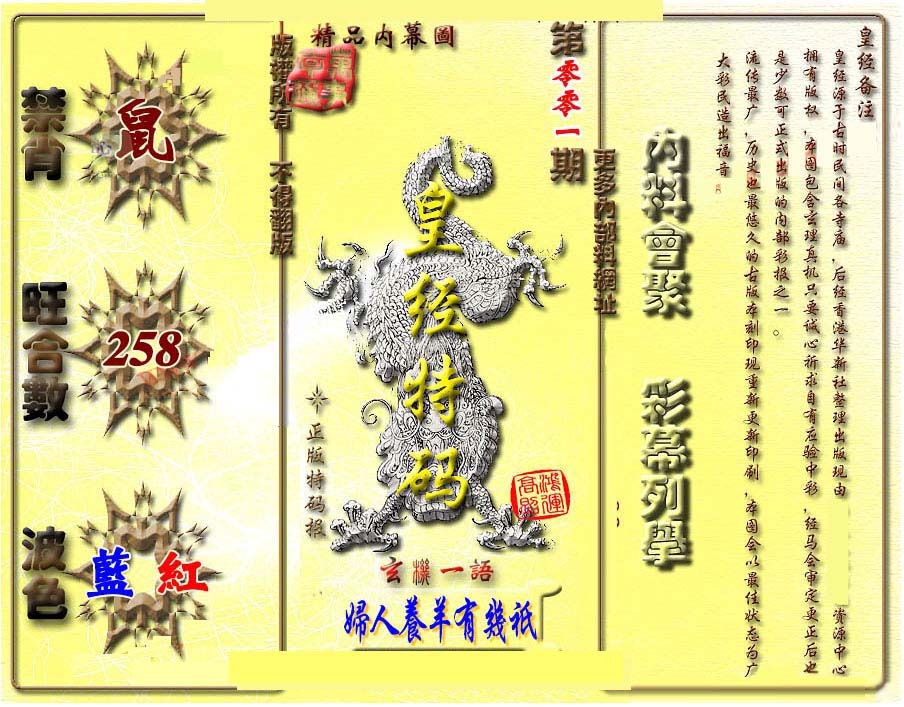 皇经备注
皇经源于古时民间各寺庙，后经香港华新社整理出版现由 资源中心
拥有版权，本图包含玄理真机只要诚心祈求自有应验中彩，经马会审定更正后也
是少数可正式出版的内部彩报之一。
流传最广，历史也最悠久的古版本刻印现重新更新印刷，本图会以最佳状态为广
大彩民造出福音
内料會聚
彩幕列舉
更多內部料網址
第零零一期
精品内幕圖
皇经特码
正版特码报
鸿運高照
玄機一語
婦人養羊有幾祇
版權所有
不得翻版
禁肖
鼠
旺合數
258
波色
藍 紅